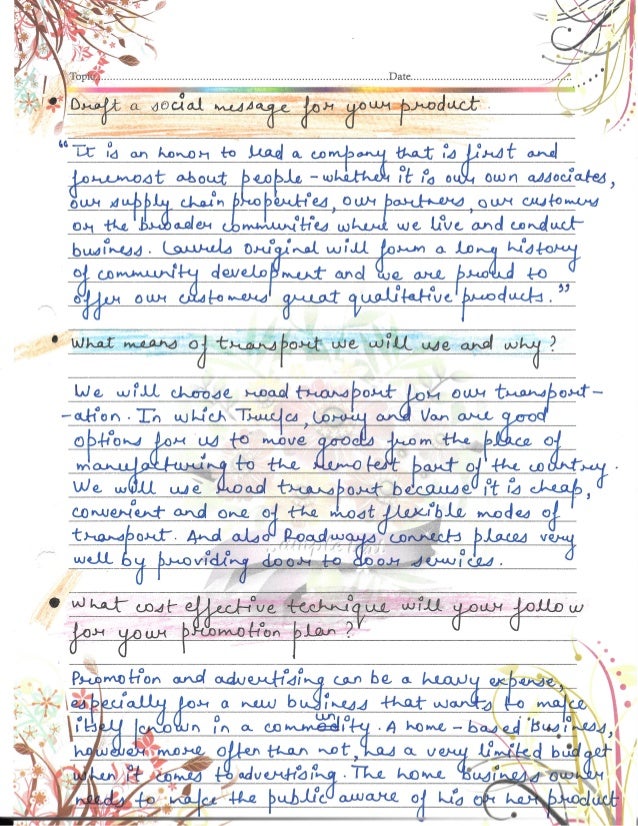 Topic Date
• Draft a social message for your product.
"It is an honor to lead a company that is first and
foremost about people - whether it is our own associates,
our supply chain properties, our partners, our customers
or the broader communities where we live and conduct
business. Laurels Original will form a long history
of community development and we are proud to
offer our customers' great qualitative products."
• What means of transport we will use and why?
We will choose road transport for our transport-
-ation. In which Trucks, Lorry and Van are good
options for us to move goods from the place of
manufacturing to the remotest part of the country.
We will use road transport because it is cheap,
convenient and one of the most flexible modes of
transport. And also Roadways connects places very
well by providing door to door services.
• What cost effective technique will your follow
for your promotion plan?
Promotion and advertising can be a heavy expense,
especially for a new business that wants to make
itself known in a community. A home-based Business,
however more often than not, has a very limited budget
when it comes to advertising. The home business owner
needs to make the public aware of his or her product